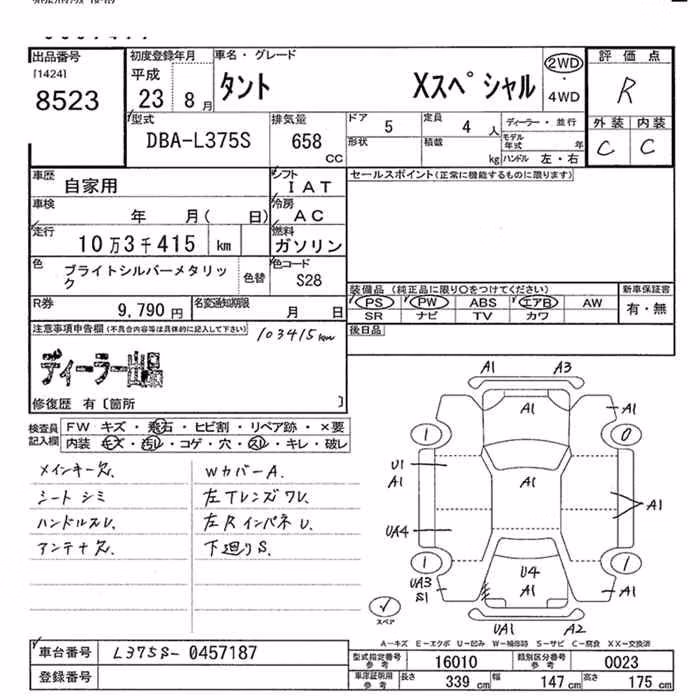 出品番号
[1424]
8523
初度登録年月
平成
23 8月
車名・グレード
タント Xスペシャル
2WD
・
4WD
評価点
R
外装 内装
C C
型式
DBA-L375S
排気量
658
CC
ドア
5
定員
4 人
ディーラー・並行
形状
積載
kg
モデル年式 年
ハンドル 左・右
車歴
自家用
シフト
IAT
車検
年 月( 日)
冷房
AC
走行
10万3千415 km
燃料
ガソリン
色
ブライトシルバーメタリック
色替
色コード
S28
R券
9,790 円
名変通知期限
月 日
セールスポイント(正常に機能するものに限ります)
装備品 (純正品に限り○をつけてください)
PS PW ABS エアB AW
SR ナビ TV カワ
新車保証書
有・無
後日品
注意事項申告欄(不具合内容等は具体的に記入して下さい)
103415km
ディーラー出品
修復歴 有〔箇所 〕
検査員記入欄
FW キズ・飛石・ヒビ割・リペア跡・×要
内装 キズ・汚れ・コゲ・穴・スレ・キレ・破レ
メインキー欠.
シート シミ
ハンドルスレ.
アンテナ欠.
WカバーA.
左Tレンズワレ.
左RインパネU.
下廻りS.
A1 A3
A1 A1 A1
1 0
U1
A1
A1
A1
UA4
1 1
U4
A1
UA3
S1
A1
UA1 A2
スペア
A-キズ E-エクボ U-凹み W-補修跡 S-サビ C-腐食 XX-交換済
車台番号
L375S-0457187
登録番号
型式指定番号
参考
16010
類別区分番号
参考
0023
車庫証明用
参考
長さ 339 cm 幅 147 cm 高さ 175 cm